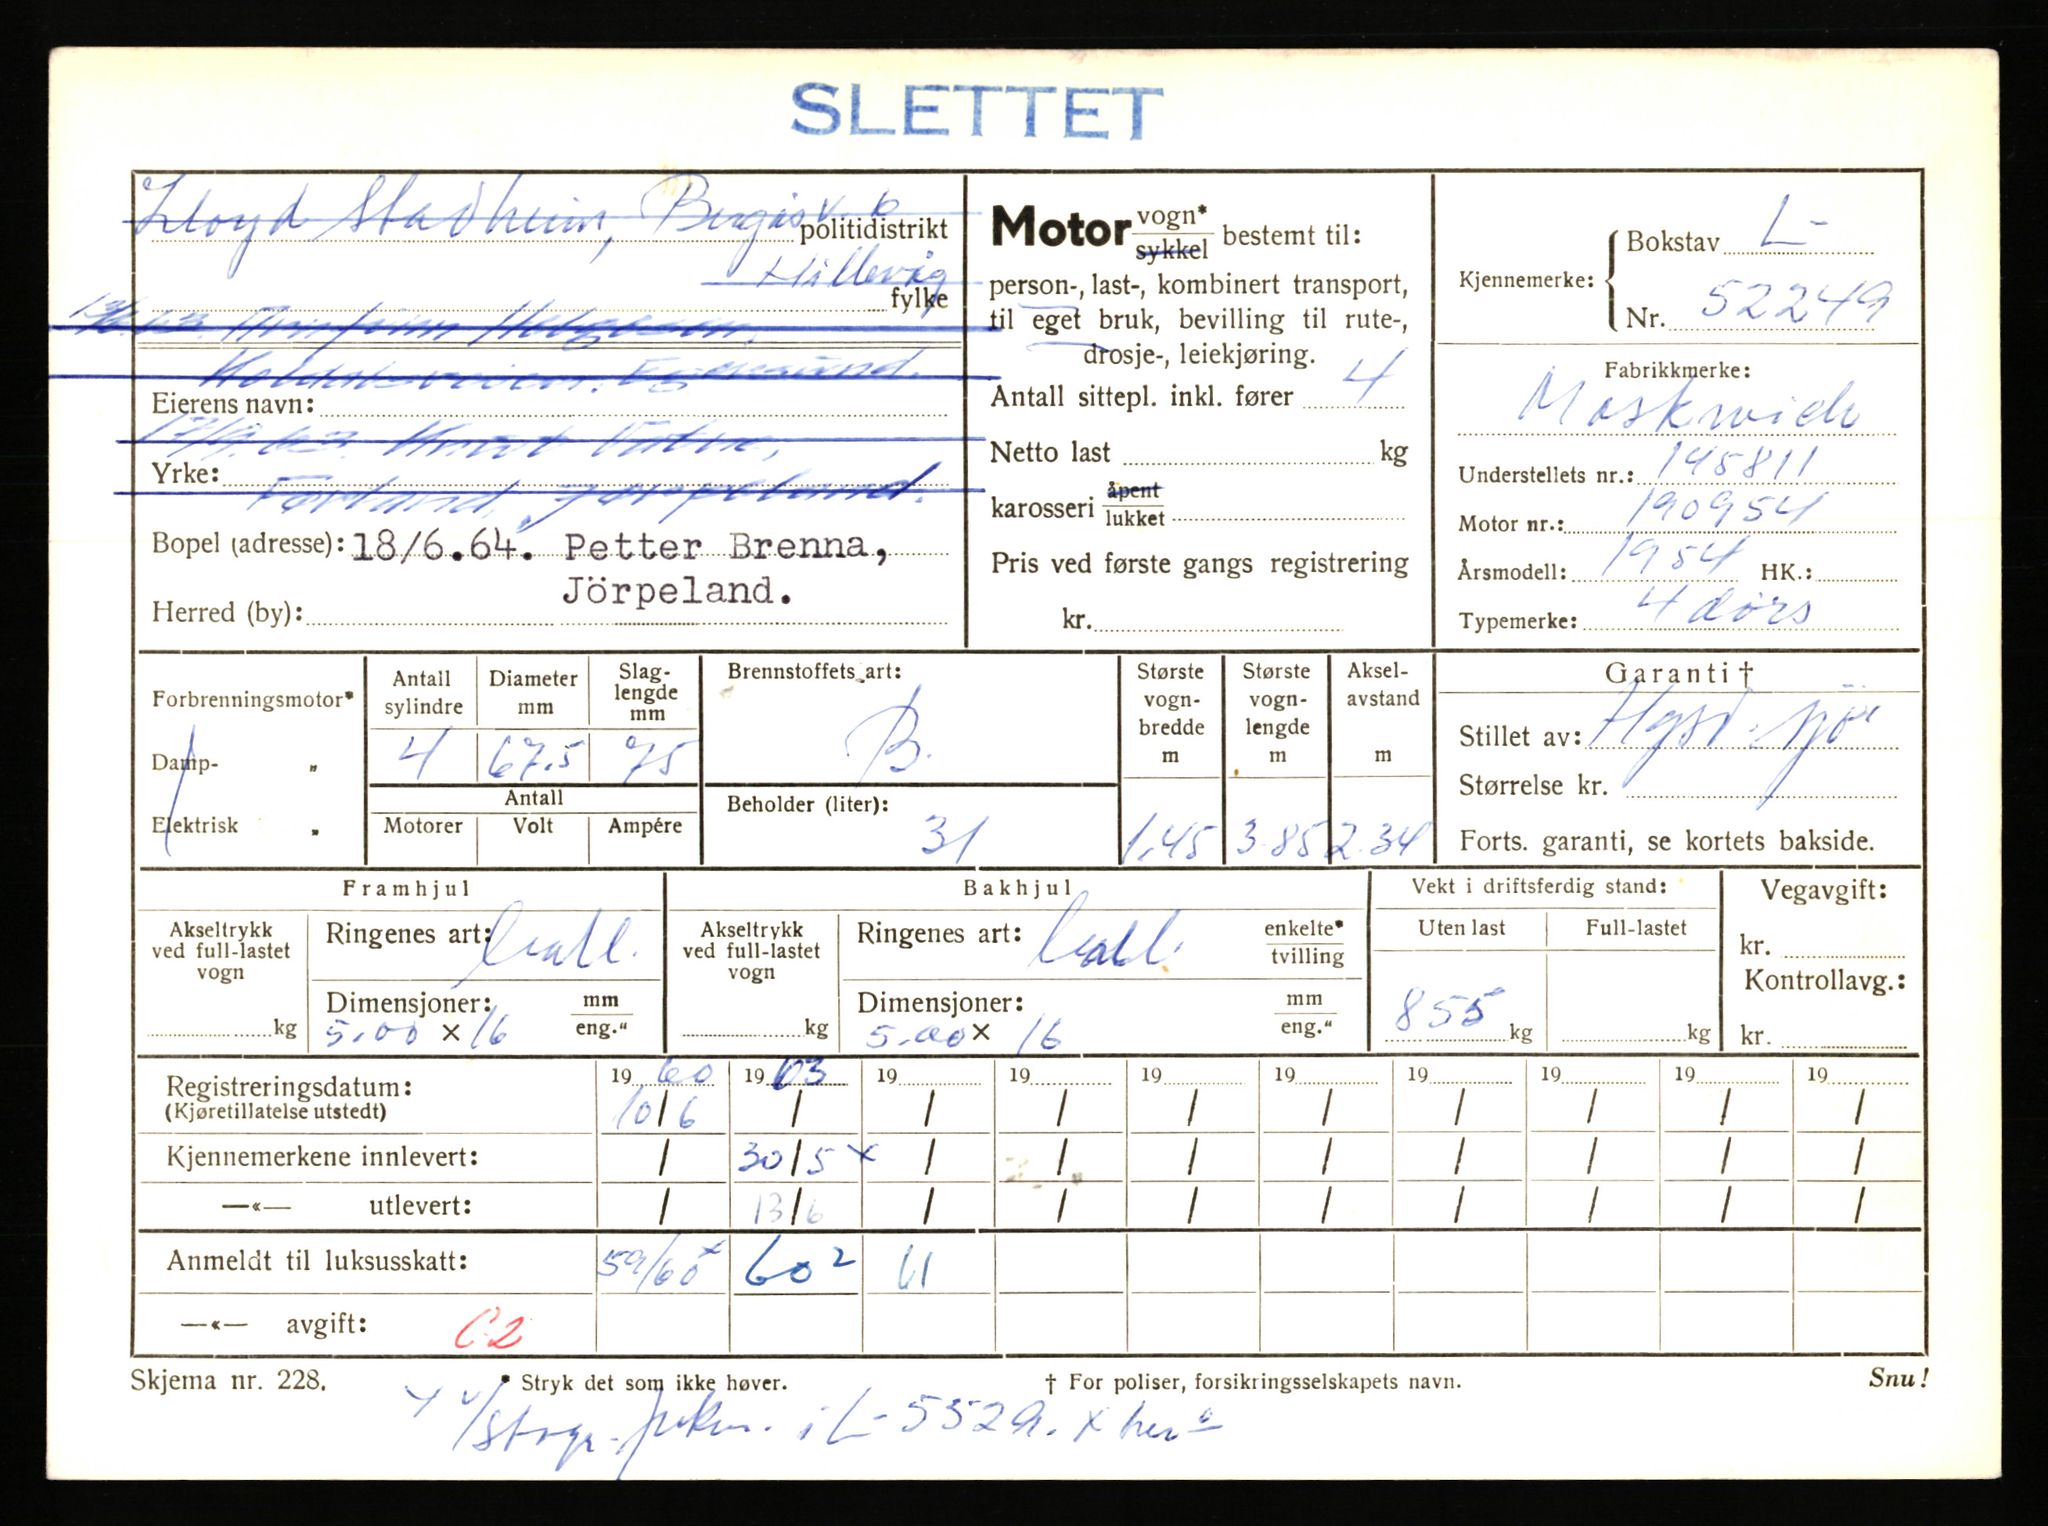 SLETTET
Lloyd Stadheim,
politidistrikt
Hillevåg
fylke
Helgesen,
Egersund.
Eierens navn:
Knut
Yrke:
Jørpeland.
Bopel (adresse): 18/6.64. Petter Brenna,
Jörpeland.
Herred (by):
Motor vogn* sykkel bestemt til:
person-, last-, kombinert transport,
til eget bruk, bevilling til rute-,
drosje-, leiekjøring.
Antall sittepl. inkl. fører 4
Netto last kg
karosseri åpent lukket
Pris ved første gangs registrering
kr.
Kjennemerke: Bokstav L-
Nr. 52249
Fabrikkmerke:
Moskwich
Understellets nr.: 145811
Motor nr.: 190954
Årsmodell: 1954 HK.:
Typemerke: 4 dørs
Forbrenningsmotor*
Damp- „
Elektrisk „
Antall sylindre Diameter mm Slag-lengde mm
4 67.5 75
Antall
Motorer Volt Ampére
Brennstoffets art:
B.
Beholder (liter):
31
Største vogn-bredde m
1.45
Største vogn-lengde m
3.85
Aksel-avstand m
2.34
Garanti †
Stillet av:
Størrelse kr.
Forts. garanti, se kortets bakside.
Framhjul
Akseltrykk ved full-lastet vogn
kg
Ringenes art:
Dimensjoner: mm eng."
5.00 × 16
Bakhjul
Akseltrykk ved full-lastet vogn
kg
Ringenes art: enkelte* tvilling
Dimensjoner: mm eng."
5.00 × 16
Vekt i driftsferdig stand:
Uten last Full-lastet
855 kg kg
Vegavgift:
kr.
Kontrollavg.:
kr.
Registreringsdatum: 19 60 19 63 19 19 19 19 19 19 19 19
(Kjøretillatelse utstedt) 10/6 / / / / / / / / /
Kjennemerkene innlevert: / 30/5 x / / / / / / / /
—«— utlevert: / 13/6 / / / / / / / /
Anmeldt til luksusskatt: 59/60 x 60 2 61
—«— avgift: C2
Skjema nr. 228. * Stryk det som ikke høver. † For poliser, forsikringsselskapets navn. Snu!
i L-5529. x her